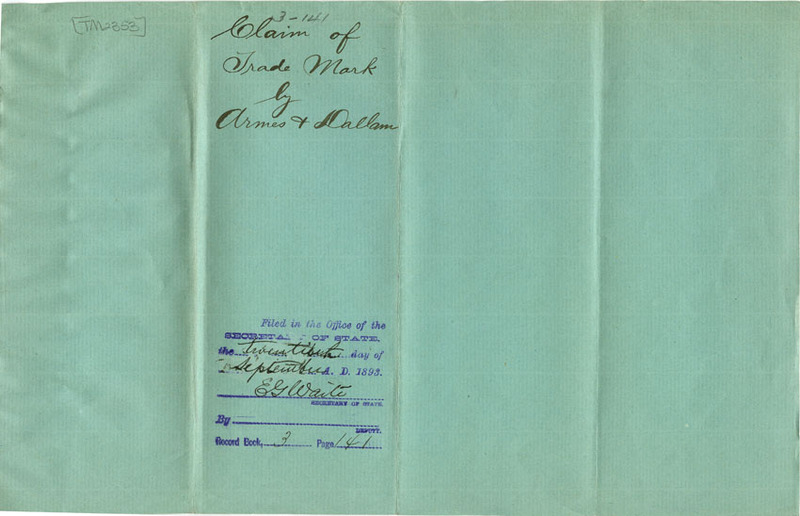 [TM2353]
3-141
Claim of
Trade Mark
by
Armes & Dallam
Filed in the Office of the
SECRETARY OF STATE,
the twentieth day of
September A. D. 1893.
E G Waite
SECRETARY OF STATE.
By
DEPUTY.
Record Book, 3 Page 141